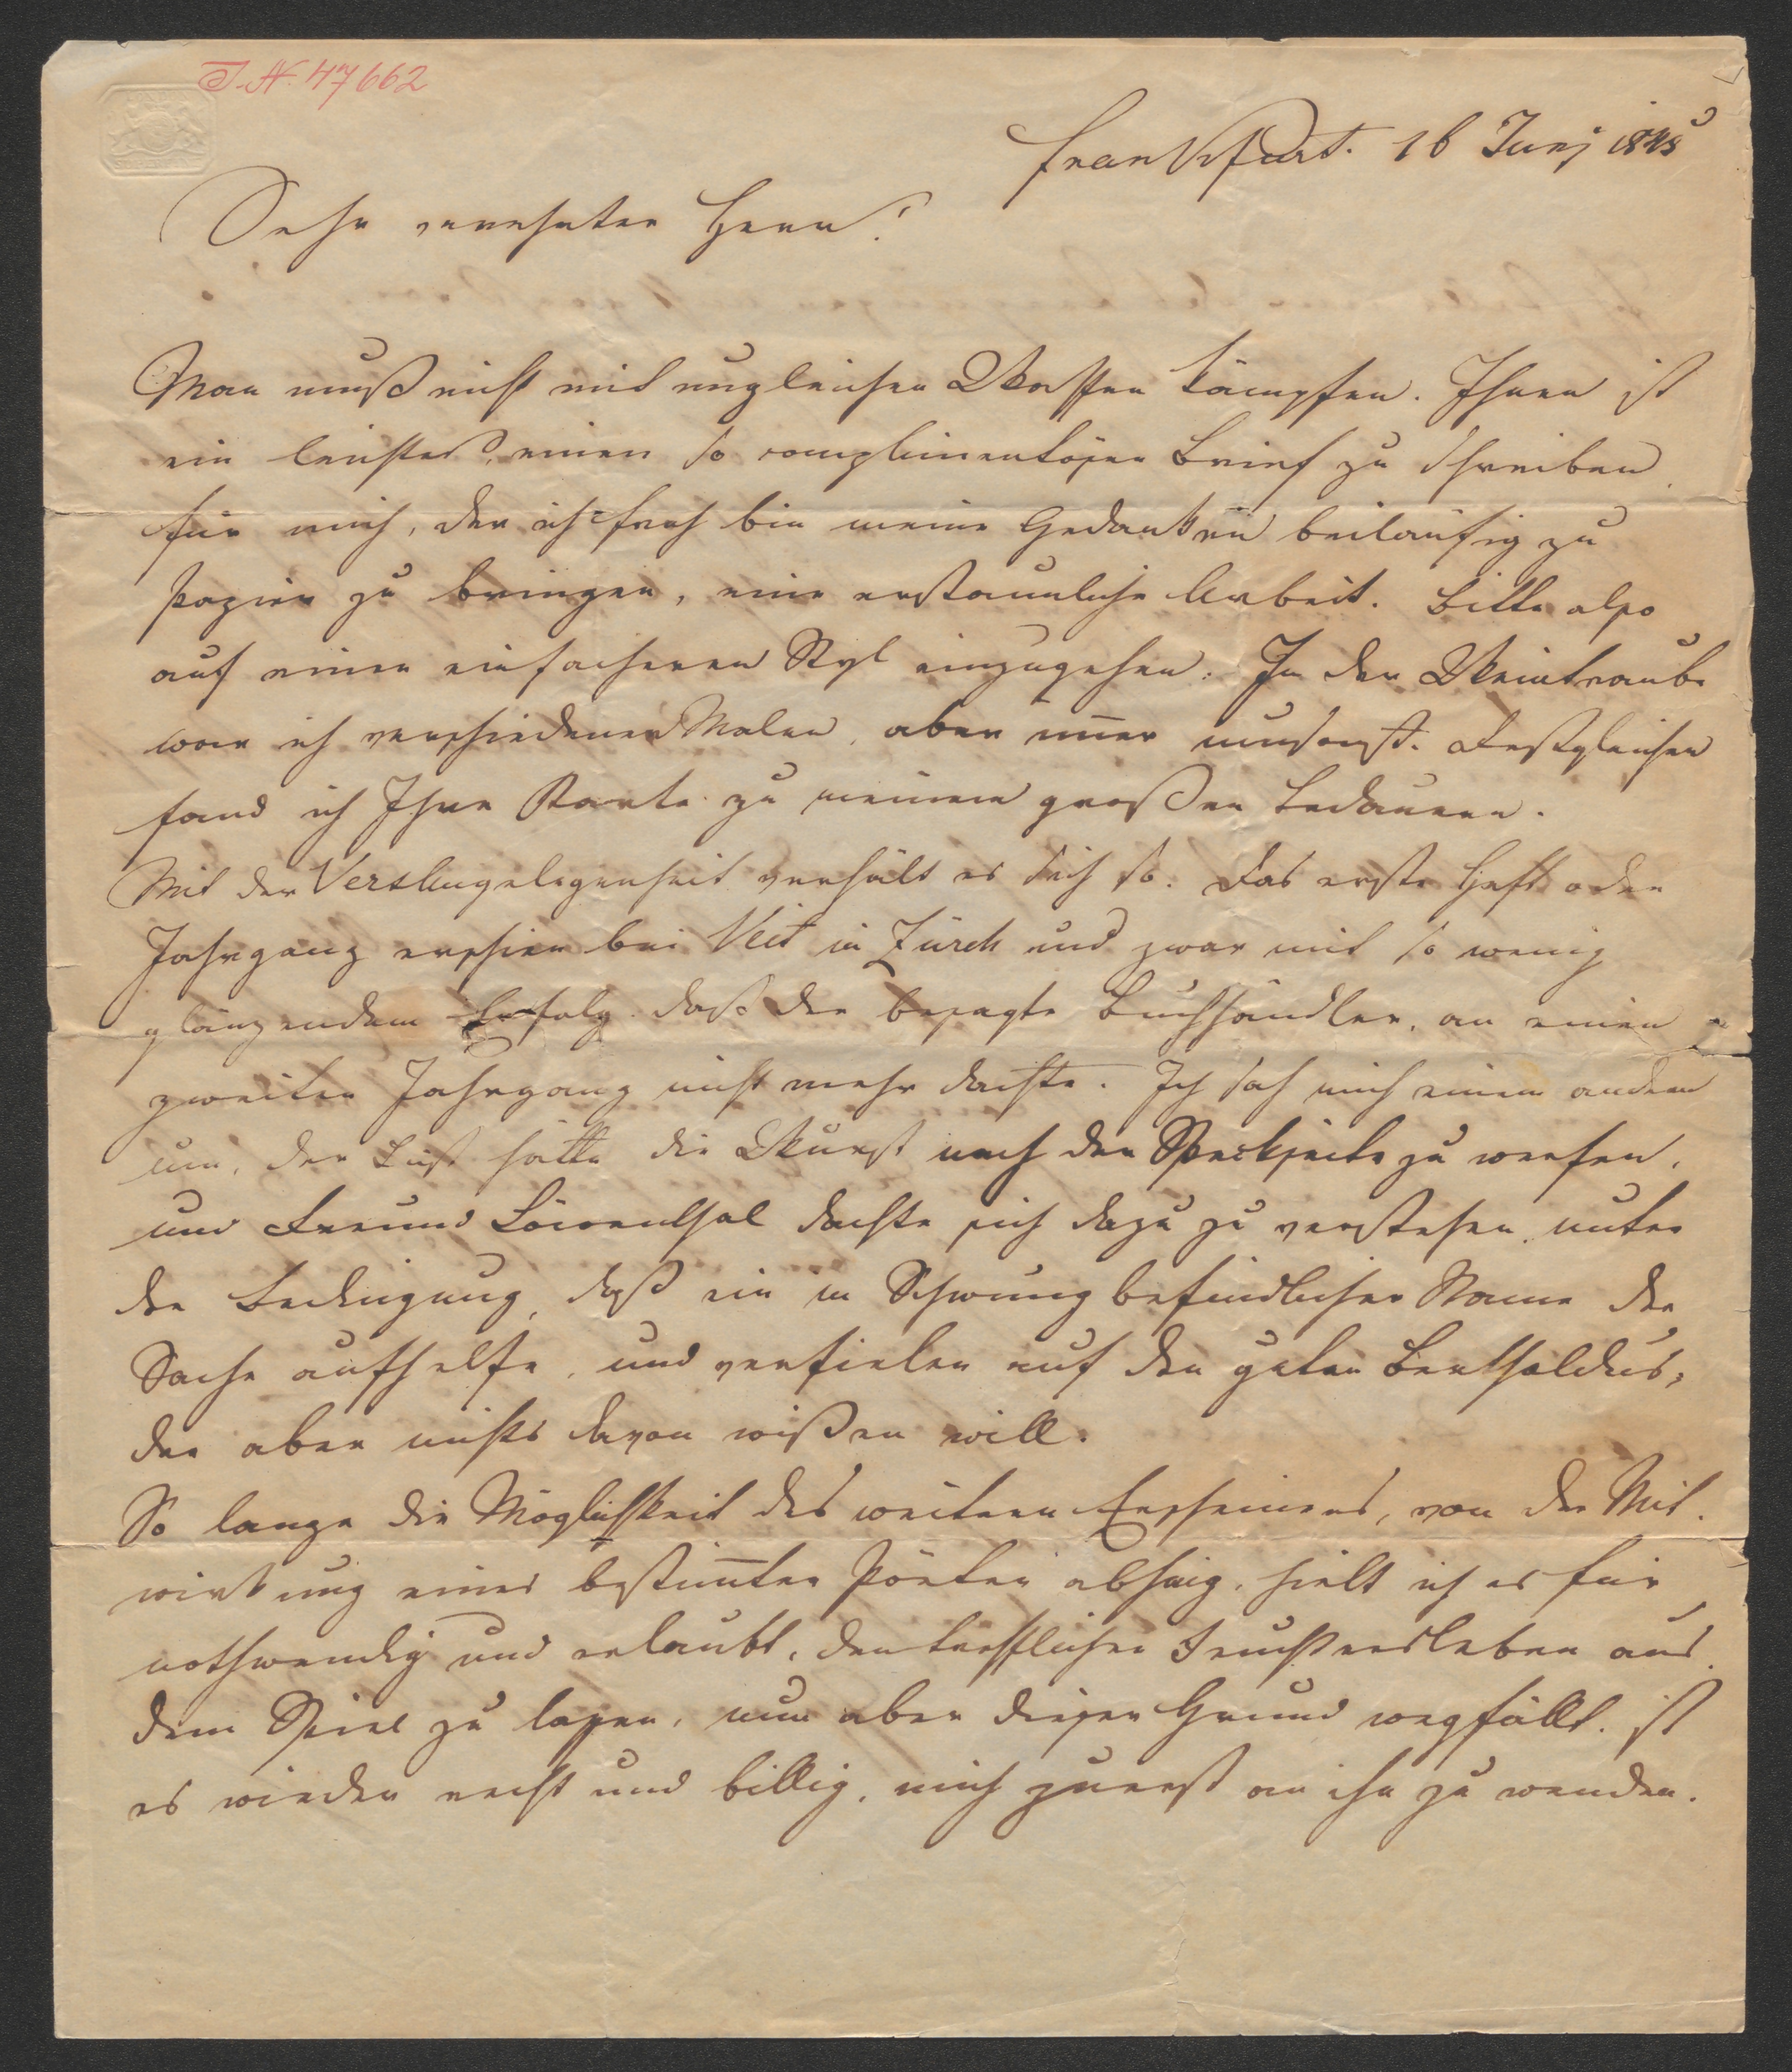 I. N. 47662
Frankfurt. 16 Junj 1845
Sehr verehrter Herr!
Man muß nicht mit ungleichen Waffen kämpfen. Ihnen ist
ein leichtes, einen so complimentösen Brief zu schreiben
für mich, der ich froh bin meine Gedanken beiläufig zu
Papier zu bringen, eine erstaunliche Arbeit. Bitte also
auf einen einfacheren Styl einzugehen. In der Weintraube
war ich verschiedene Malen, aber im̅er umsonst. Deßgleichen
fand ich Ihre Karte zu meinem großen Bedauern.
Mit der Versangelegenheit verhält es sich so. Das erste Heft oder
Jahrgang erschien bei Veit in Zürch und zwar mit so wenig
glänzendem Erfolg daß der besagte Buchhändler, an einen
zweiten Jahrgang nicht mehr dachte. Ich sah mich einem andern
um, der Lust hätte die Wurst nach der Speckseite zu werfen,
und Freund Löwenthal dachte sich dazu zu verstehen, unter
der Bedingung, daß ein in Schwung befindlicher Name der
Sache aufhelfe, und verfielen auf den guten Bertholdus,
der aber nichts davon wißen will.
So lange die Möglichkeit des weitern Erscheinens, von der Mit-
wirkung eines bestim̅ten Pöeten abhing, hielt ich es für
nothwendig und erlaubt, den trefflichen aus
dem Spiel zu lassen, nun aber dieser Grund wegfällt, ist
es wieder recht und billig, mich zuerst an ihn zu wenden.